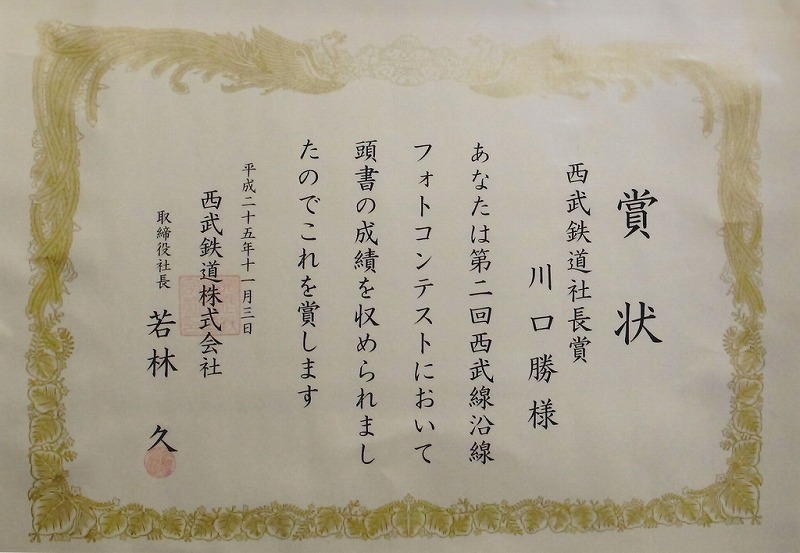 賞状
西武鉄道社長賞
川口勝様
あなたは第二回西武線沿線
フォトコンテストにおいて
頭書の成績を収められまし
たのでこれを賞します
平成二十五年十一月三日
西武鉄道株式会社
取締役社長 若林 久